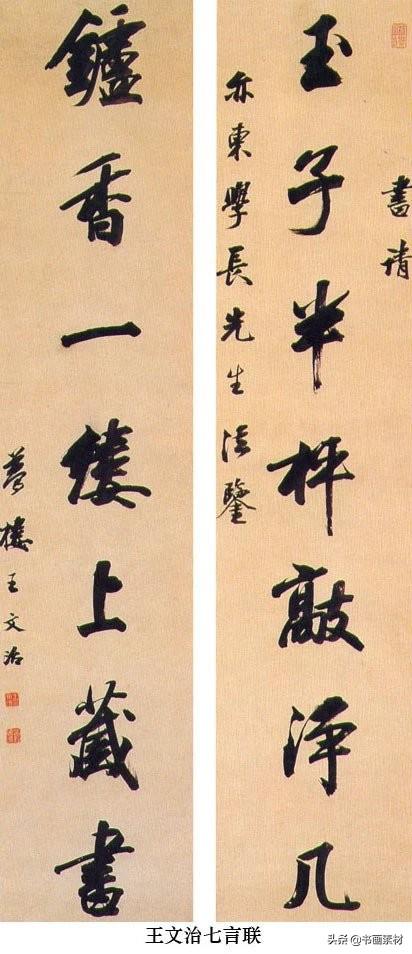 書請
玉子半枰敲淨几
亦東學長先生法鑒
鑪香一縷上藏書
夢樓王文治
王文治七言联
头条@书画素材